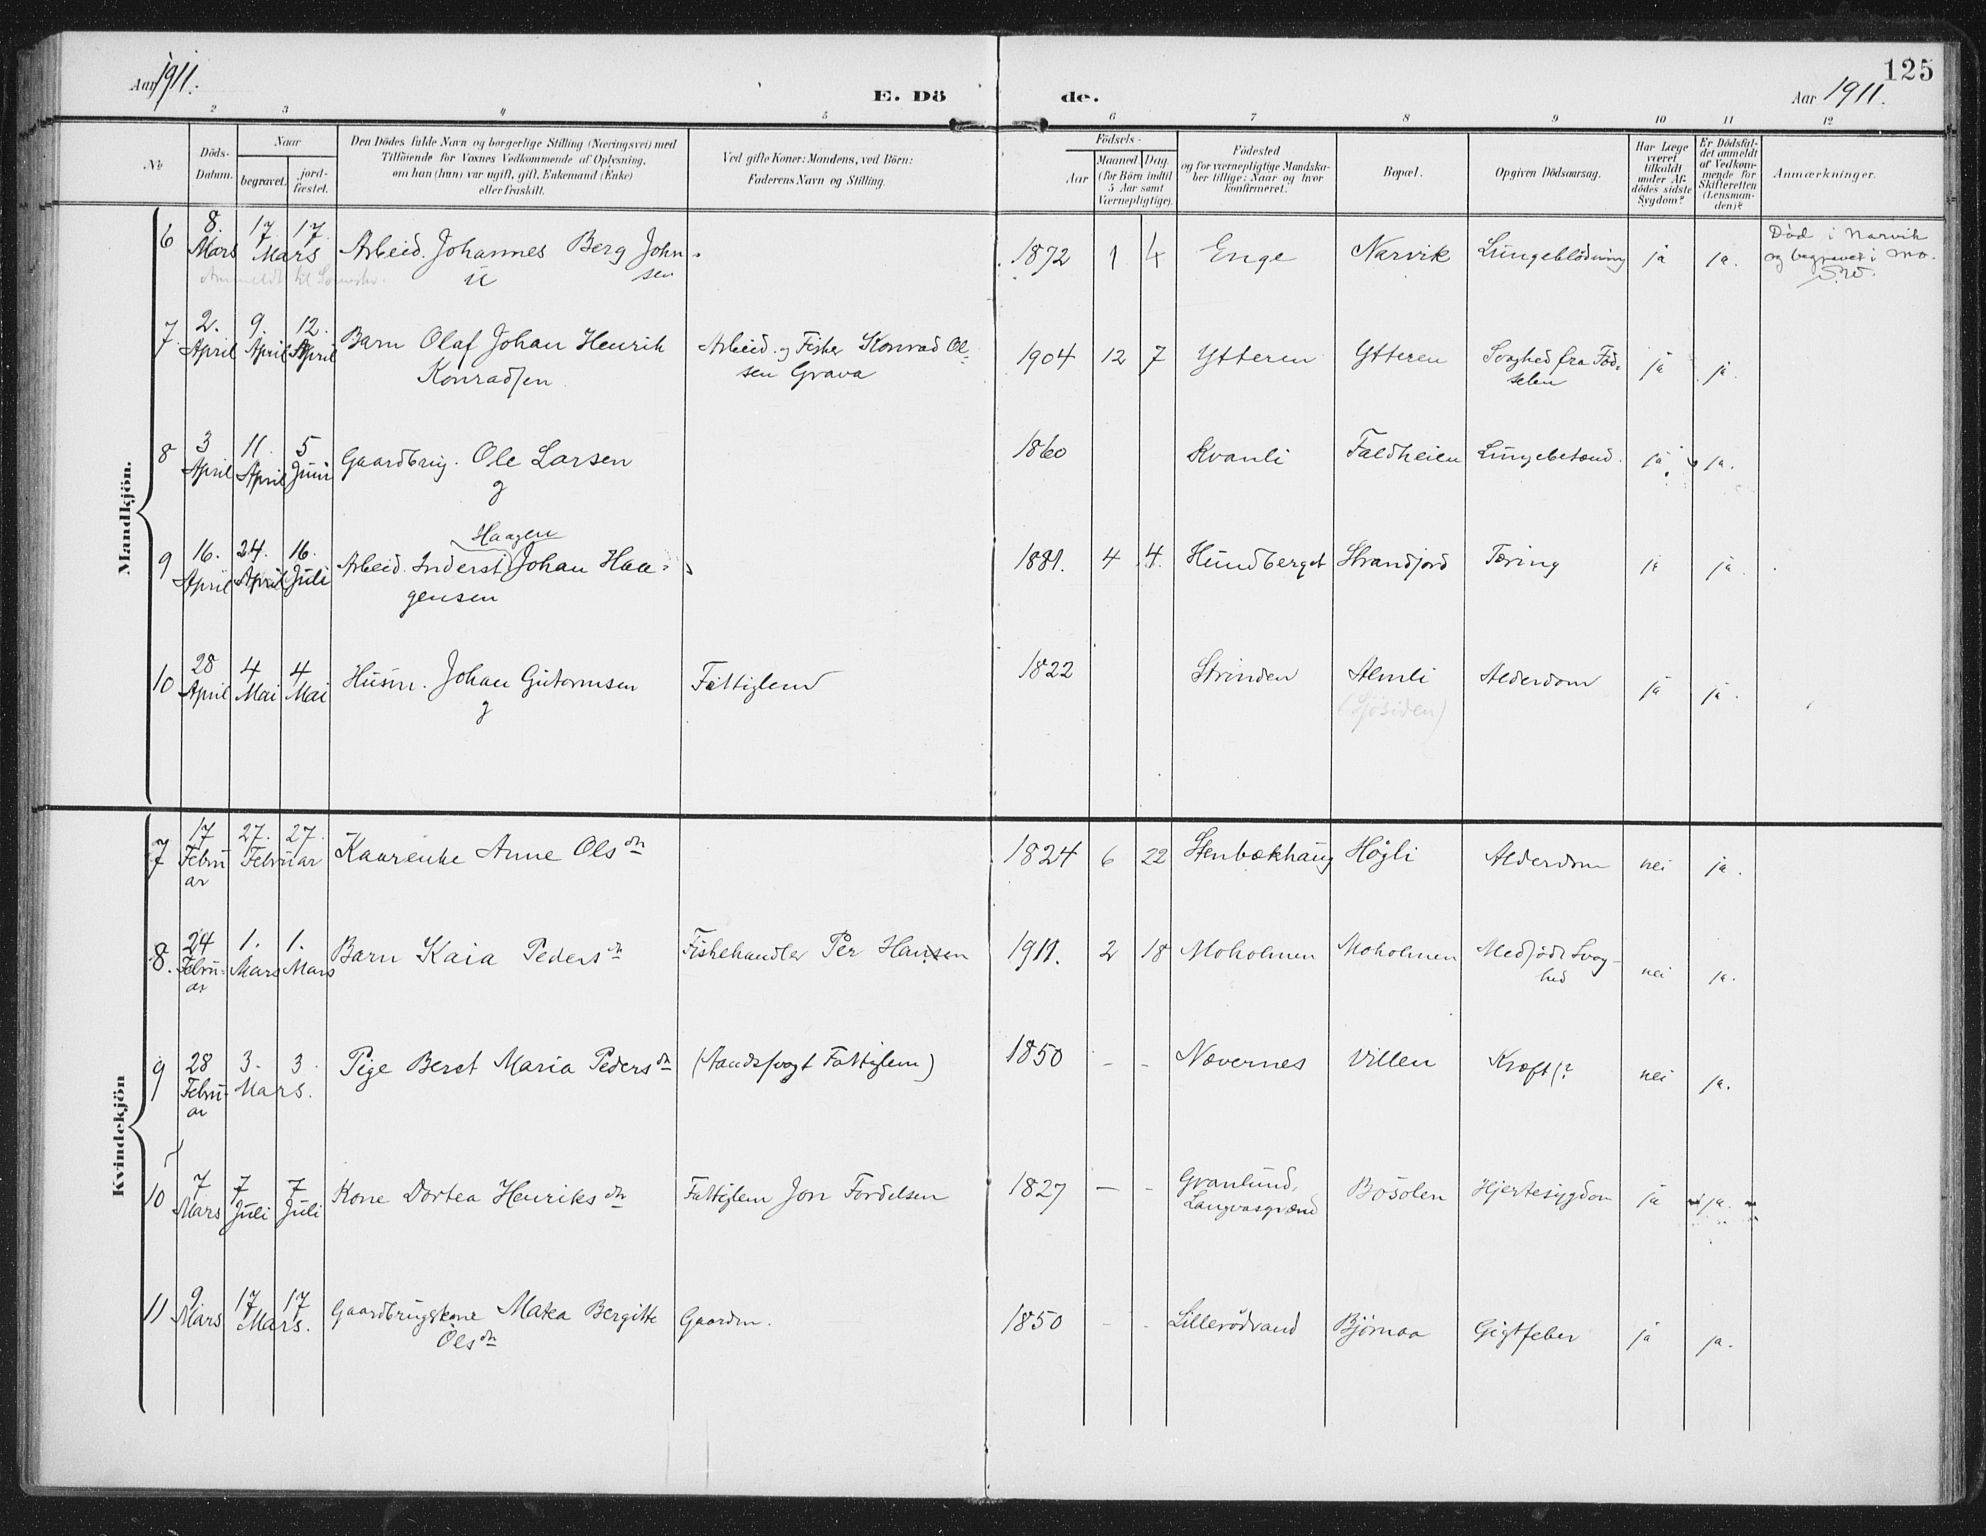 Aar 1911.
E. Dö
de.
Aar 1911.
125
2 3 4 5 6 7 8 9 10 11 12
No
Döds-Datum.
Naar
begravet.
jord-fæstet.
Den Dödes fulde Navn og borgerlige Stilling (Næringsvei) med
Tilföiende for Voxnes Vedkommende af Oplysning,
om han (hun) var ugift, gift, Enkemand (Enke)
eller fraskilt.
Ved gifte Koner: Mandens, ved Börn:
Faderens Navn og Stilling.
Födsels-
Aar
Maaned Dag
(for Börn indtil
5 Aar samt
Værnepligtige).
Födested
og for værnepligtige Mandska-
ber tillige: Naar og hvor
konfirmeret.
Bopæl.
Opgiven Dödsaarsag.
Har Læge
været
tilkaldt
under Af-
dödes sidste
Sygdom?
Er Dödsfal-
det anmeldt
af Vedkom-
mende for
Skifteretten
(Lensman-
den)?
Anmærkninger.
Mandkjön.
6 8. Mars 17 17 Mars Arbeid. Johannes Berg John-
sen
u
1872 1 4 Enge Narvik Lungeblödning ja ja.
Död i Narvik
og begravet i Mo.
7 2. April 9. April 12. April Barn Olaf Johan Henrik
Konradsen
Arbeid. og Fisker Konrad Ol-
sen Grava
1904 12 7 Ytteren Ytteren Svaghed fra Föd-
selen
ja ja.
8 3 April 11. April 5 Juni Gaardbrug. Ole Larsen
g
1860 Kvanli Faldheien Lungebetænd. ja ja.
9 16. April 24. April 16. Juli Arbeid. Inderst Haagen Johan Haa-
gensen
1881. 4 4. Hundberget Strandjord Tæring ja ja.
10 28 April 4 Mai 4 Mai Husm. Johan Gutormsen
g
Fattiglem
1822 Strinden Almli
(Sjøsiden)
Alderdom ja ja.
Kvindekjön
7 17 Februar 27. 27. Februar Kaarenke Anne Olsdn
1824 6 22 Stenbækhaug Högli Alderdom nei ja.
8. 24 Februar 1. Mars 1. Mars Barn Kaia Pedersdn
Fiskehandler Per Hansen
1911. 2 18 Moholmen Moholmen Medfödt Svag-
hed
nei ja.
9 28 Februar 3. 3. Mars. Pige Beret Maria Pedersdn
(Aandssvagt Fattiglem)
1850 - - Nævernes Villen Kræft(? nei ja.
10 7 Mars 7 Juli 7 Juli Kone Dortea Henriksdn
Fattiglem Jon Fordelsen
1827 - - Granlund,
Langvasgrænd
Bosolen Hjertesygdom ja ja.
11 9 Mars 17 17 Mars. Gaardbrugskone Matea Bergitte
Olsdn
Gaardm.
1850 - - Lillerödvand Bjørnaa Gigtfeber ja ja.